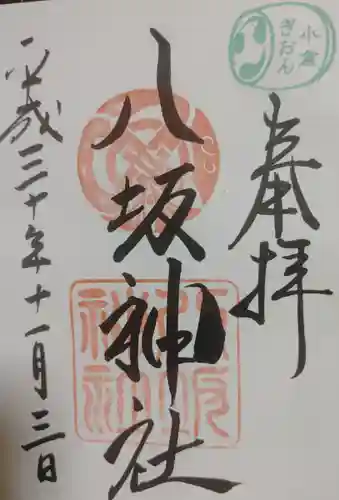 小倉
ぎおん
奉拝
八坂神社
八坂
神社
平成三十年十一月三日